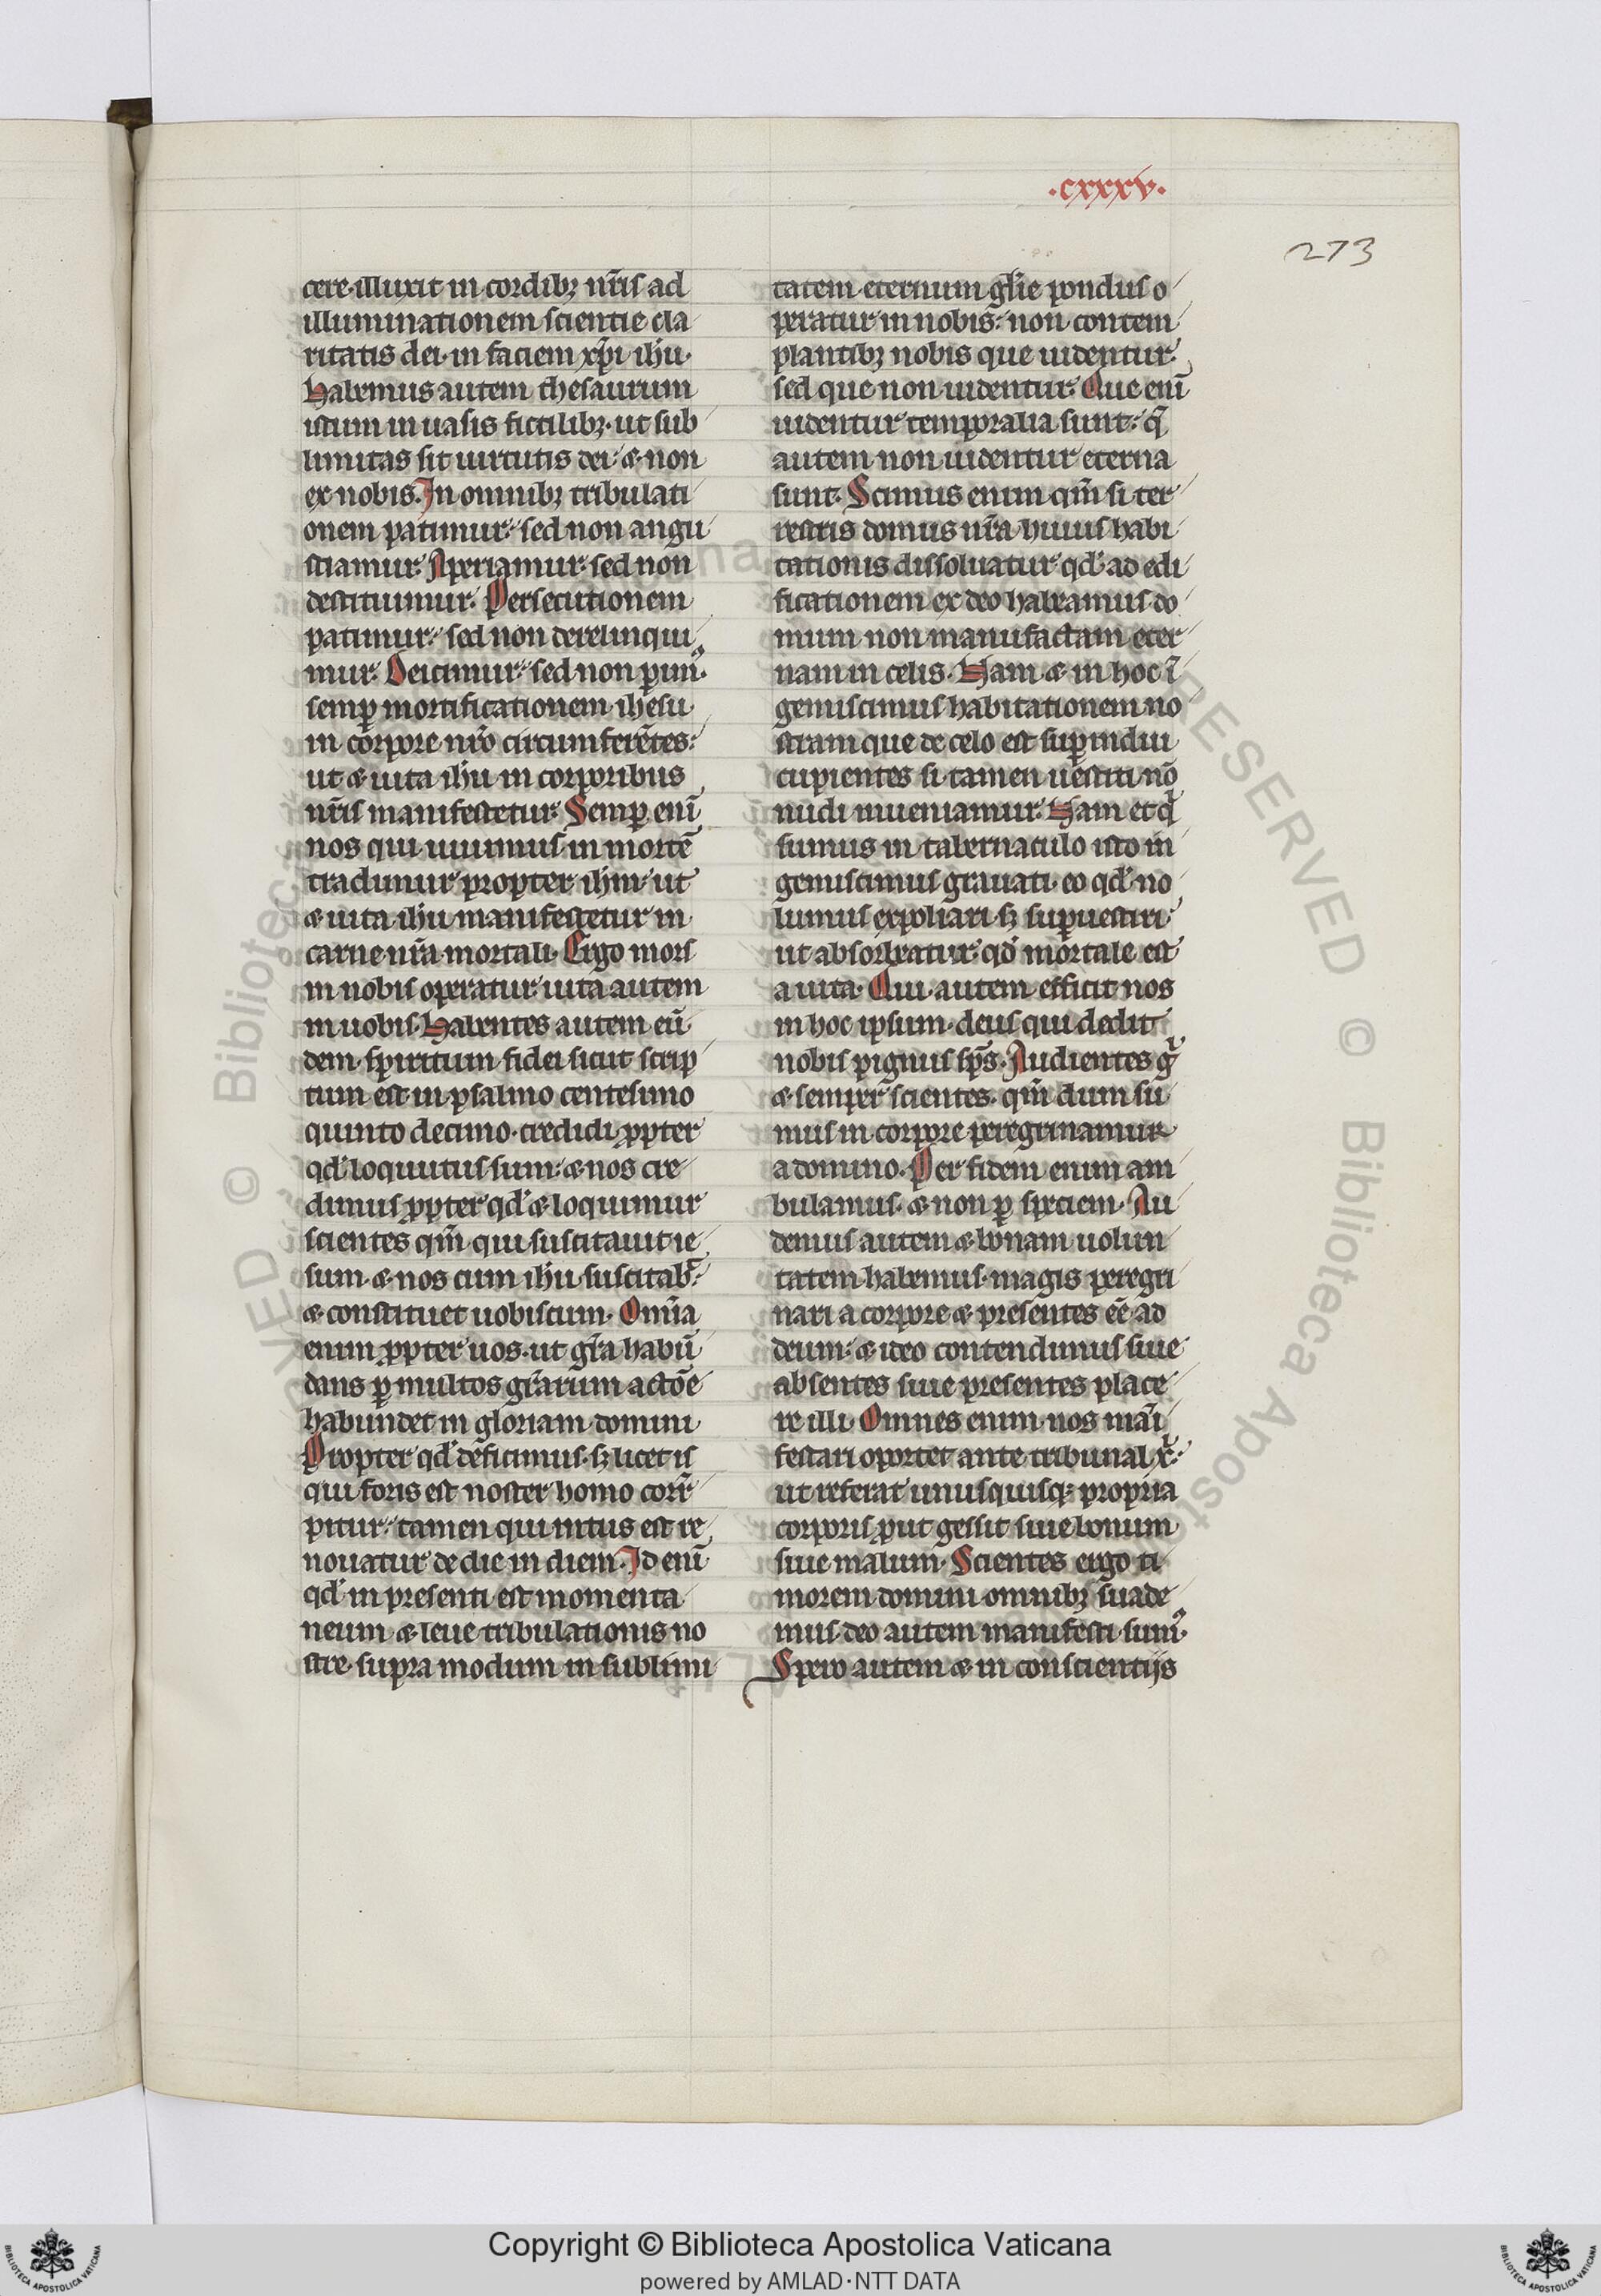 .cxxxv.
273
cere·illuxit in cordibꝫ nr̃is ad
illuminationem scientie cla
ritatis dei· in faciem xp̃i ihũ·
Habemus autem thesaurum
istum in uasis fictilibꝫ· ut sub
limitas sit uirtutis dei· ⁊ non
ex nobis. In omnibꝫ tribulati
onem patimur: sed non angu
stiamur. Aperiamur· sed non
destituimur. Persecutionem
patimur: sed non derelinqui
mur. Deicimur: sed non perim᷒·
semꝑ mortificationem ihesu
in corpore nr̃o circumferẽtes:
ut ⁊ uita ihũ in corporibus
nr̃is manifestetur. Semꝑ enĩ
nos qui uiuimus in mortẽ
tradimur propter ihm̃ ut
⁊ uita ihũ manifestetur in
carne nr̃a mortali. Ergo mors
in nobis operatur· uita autem
in uobis. Habentes autem eũ
dem spiritum fidei sicut scrip
tum est in psalmo centesimo
quinto decimo· credidi ꝓpter
qđ loquutus sum: ⁊ nos cre
dimus ꝓpter qđ ⁊ loquimur
scientes qm̃ qui suscitauit ie
sum· ⁊ nos cum ihũ suscitab̃:
⁊ constituet uobiscum. Om̃ia
enim ꝓpter uos· ut gr̃a habũ
dans ꝑ multos gr̃arum actõe
habundet in gloriam domini
Propter qđ deficimus· sꝫ licet is
qui foris est noster homo corr̃
pitur: tamen qui intus est re
nouatur de die in diem. Id enĩ
qđ in presenti est momenta
neum ⁊ leue tribulationis no
stre· supra modum in sublimi
tatem eternum gl̃ie pondus o
peratur in nobis: non contem
plantibꝫ nobis que uidentur·
sed que non uidentur. Que enĩ
uidentur temporalia sunt: q̃
autem non uidentur eterna
sunt. Scimus enim qm̃ si ter
restris domus nr̃a huius habi
tationis dissoluatur qđ ad edi
ficationem ex deo habeamus do
mum non manufactam eter
nam in celis. Nam ⁊ in hoc ĩ
gemiscimus habitationem no
stram que de celo est suꝑindui
cupientes si tamen uestiti nõ
nudi inueniamur. Nam et q̃
sumus in tabernaculo isto in
gemiscimus grauati· eo qđ no
lumus expoliari sꝫ suꝑuestiri:
ut absorbeatur qđ mortale est
a uita. Qui autem efficit nos
in hoc ipsum· deus qui dedit
nobis pignus sp̃s. Audientes g̃
⁊ semper scientes· qm̃ dum su
mus in corpore peregrinamur
a domino. Per fidem enim am
bulamus· ⁊ non ꝑ speciem. Au
demus autem ⁊ bonam uolun
tatem habemus· magis peregri
nari a corpore ⁊ presentes eẽ ad
deum: ⁊ ideo contendimus siue
absentes siue presentes place
re illi. Omnes enim nos mãi
festari oportet ante tribunal x̃:
ut referat unusquisqꝫ propria
corporis ꝓut gessit siue bonum
siue malum. Scientes ergo ti
morem domini omnibꝫ suade
mus· deo autem manifesti sum᷒·
Spero autem ⁊ in conscientijs
Copyright © Biblioteca Apostolica Vaticana
powered by AMLAD·NTT DATA